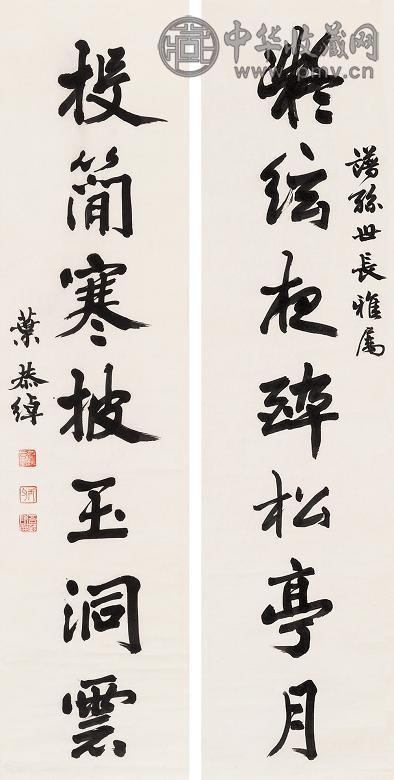 中华收藏网
www.pmv.cn
譜孫世長雅屬
絃夜醉松亭月
投簡寒披玉洞雲
葉恭綽